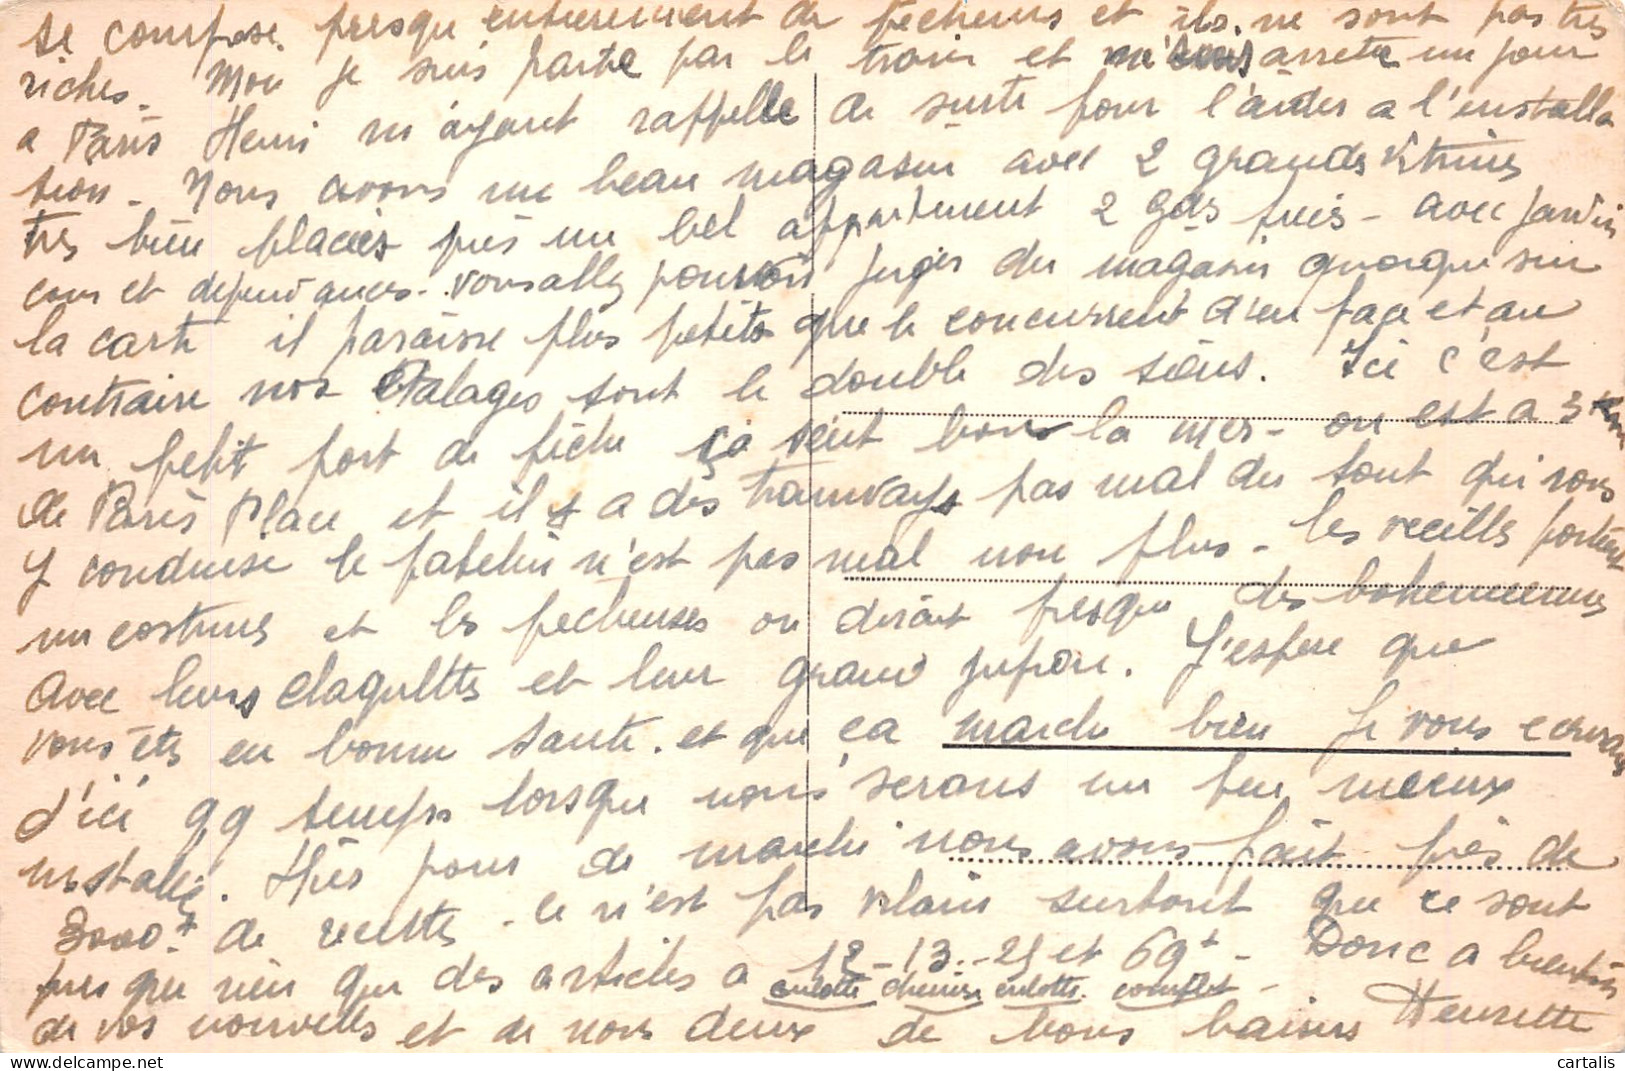 se compose presque entierement de pecheurs et ils ne sont pas tres
riches. Moi je suis partie par le train et m'suis arretée un jour
a Paris Henri m'ayant rappellee de suite pour l'aider a l'installa
tion. Nous avons un beau magasin avec 2 grandes vitrines
tres bien placées puis un bel appartement 2 gdes pieces - avec jardin
cour et dependances. vous allez pouvoir juger du magasin quoique sur
la carte il paraisse plus petite que le concurrent d'en face et au
contraire nos Etalages sont le double des siens. Ici c'est
un petit port de pêche ça sent bon la mer - on est a 3 km
de Paris Plage et il y a des tramways pas mal du tout qui vous
y conduise le patelin n'est pas mal non plus - les vieilles portent
un costume et les pecheuses on dirait presque des bohemiennes
avec leurs claquettes et leur grand jupon. J'espere que
vous êtes en bonne sante. et que ça marche bien Je vous ecrirais
d'ici qq temps lorsque nous serons un peu mieux
installés. Hier pour de marché nous avons fait près de
3000 f de recettes - ce n'est pas vilain surtout que ce sont
presque rien que des articles a 12 - 13 - 25 et 69 f - Donc a bientôt
culotte chemise culotte complet
de vos nouvelles et de nous deux de bons baisers Henriette
cartalis